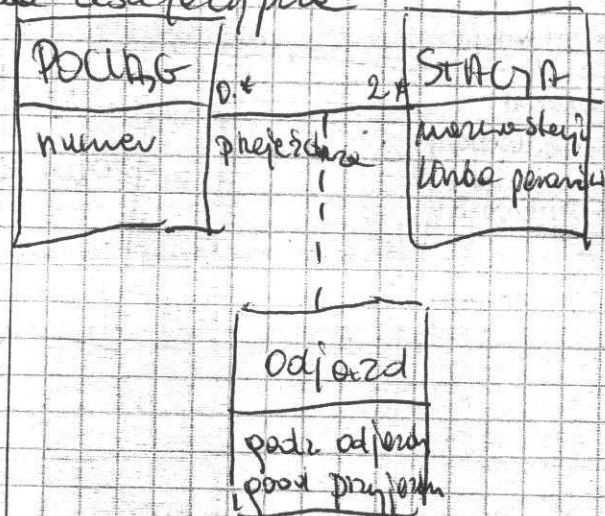 POCIĄG
0.* 2.*
STACJA
numer
przejeżdża
nazwa stacji
liczba peronów
Odjazd
godz odjazdu
godz przyjazdu